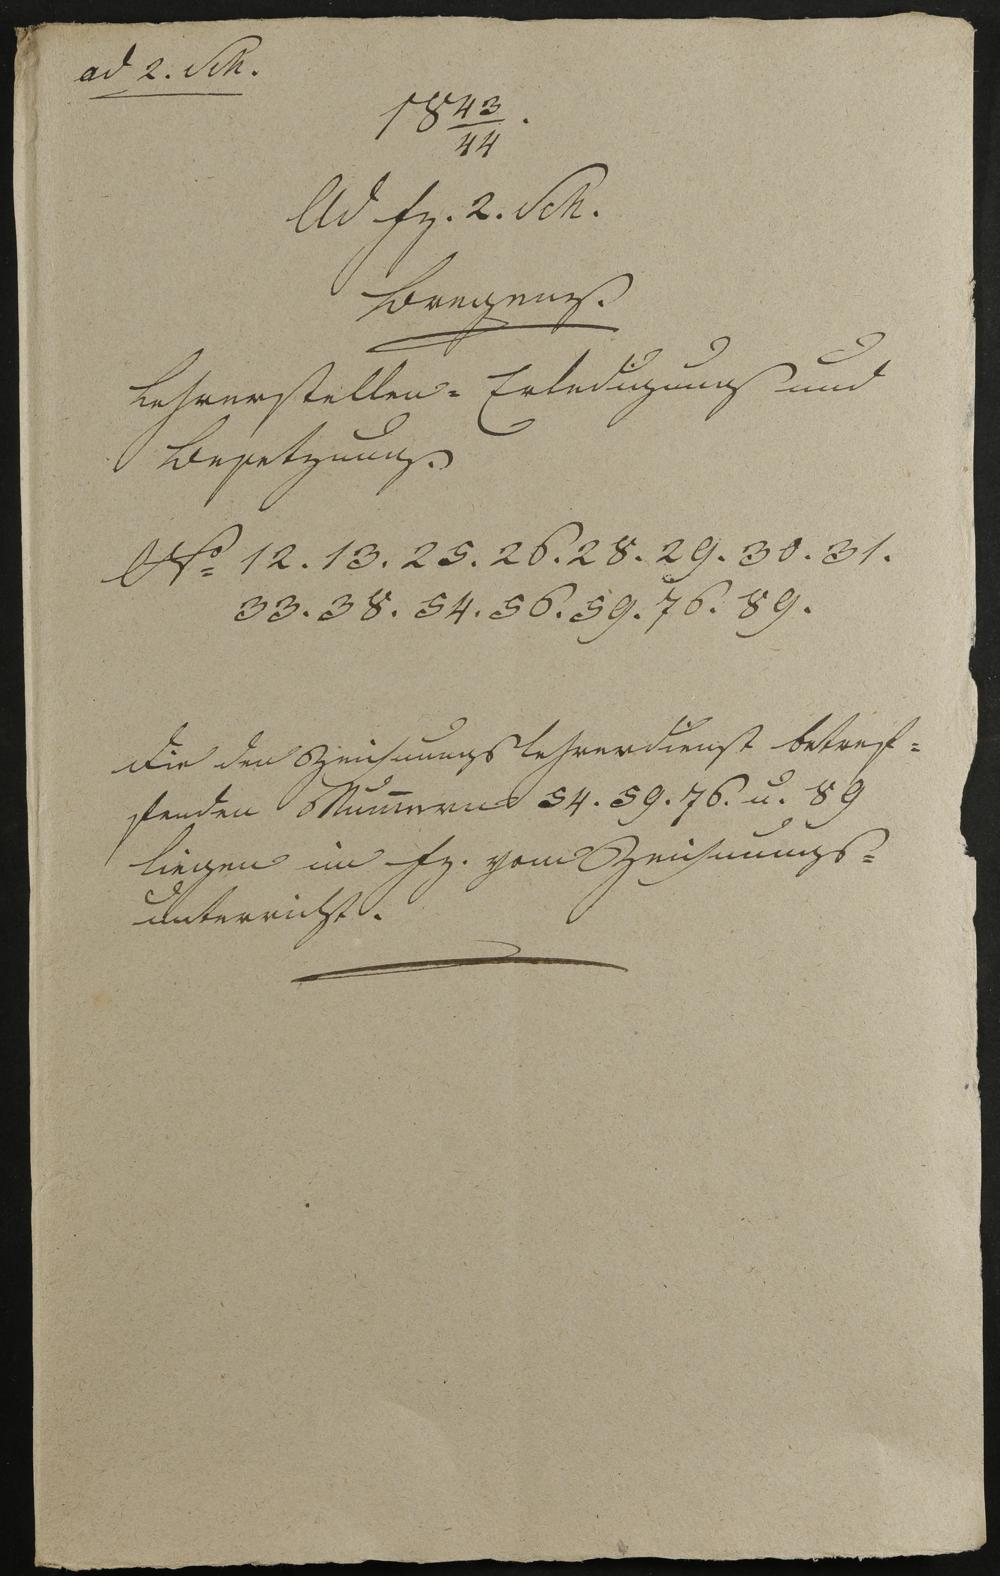 ad 2. Sch.
18 43/44.
Ad fz. 2. Sch.
Bregenz.
Lehrerstellen= Erledigung und
Besetzung.
No 12. 13. 25. 26. 28. 29. 30. 31.
33. 38. 54. 56. 59. 76. 89.
Die den Zeichnungslehrerdienst betref=
fenden Nummern 54. 59. 76. u. 89
liegen im fz. vom Zeichnungs=
unterricht.